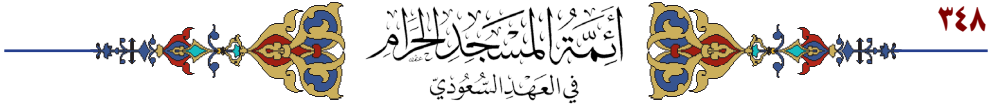 ٣٤٨
أَئِمَّةُ المَسْجِدِ الحَرَامِ
فِي العَهْدِ السُّعُودِيّ